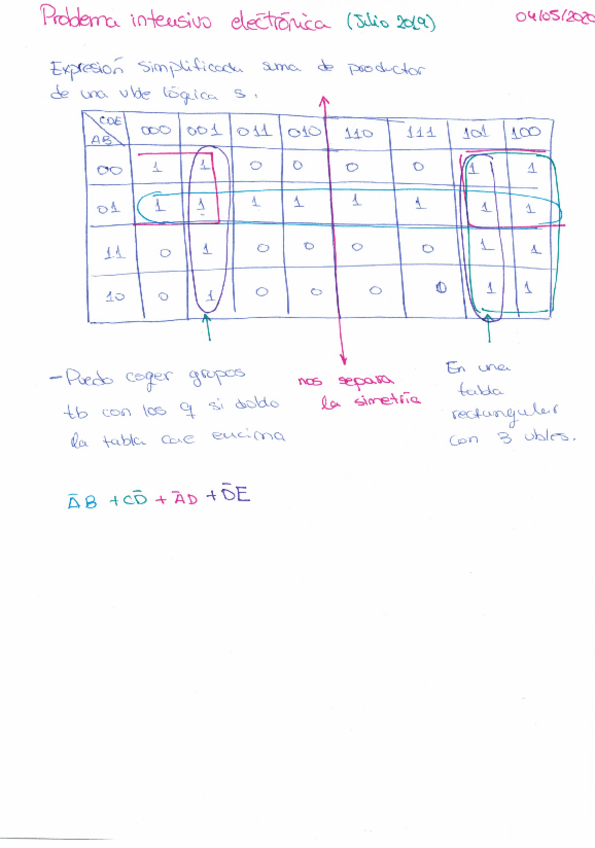 Problema intensivo electrónica (Julio 2019) 04/05/2020
Expresión simplificada suma de productor
de una vble lógica s.
CDE
AB
000 001 011 010 110 111 101 100
00 1 1 0 0 0 0 1 1
01 1 1 1 1 1 1 1 1
11 0 1 0 0 0 0 1 1
10 0 1 0 0 0 0 1 1
- Puedo coger grupos
tb con los q si doblo
la tabla cae encima
nos separa
la simetría
En una
tabla
rectangular
con 3 vbles.
A̅B + CD̅ + A̅D̅ + D̅E